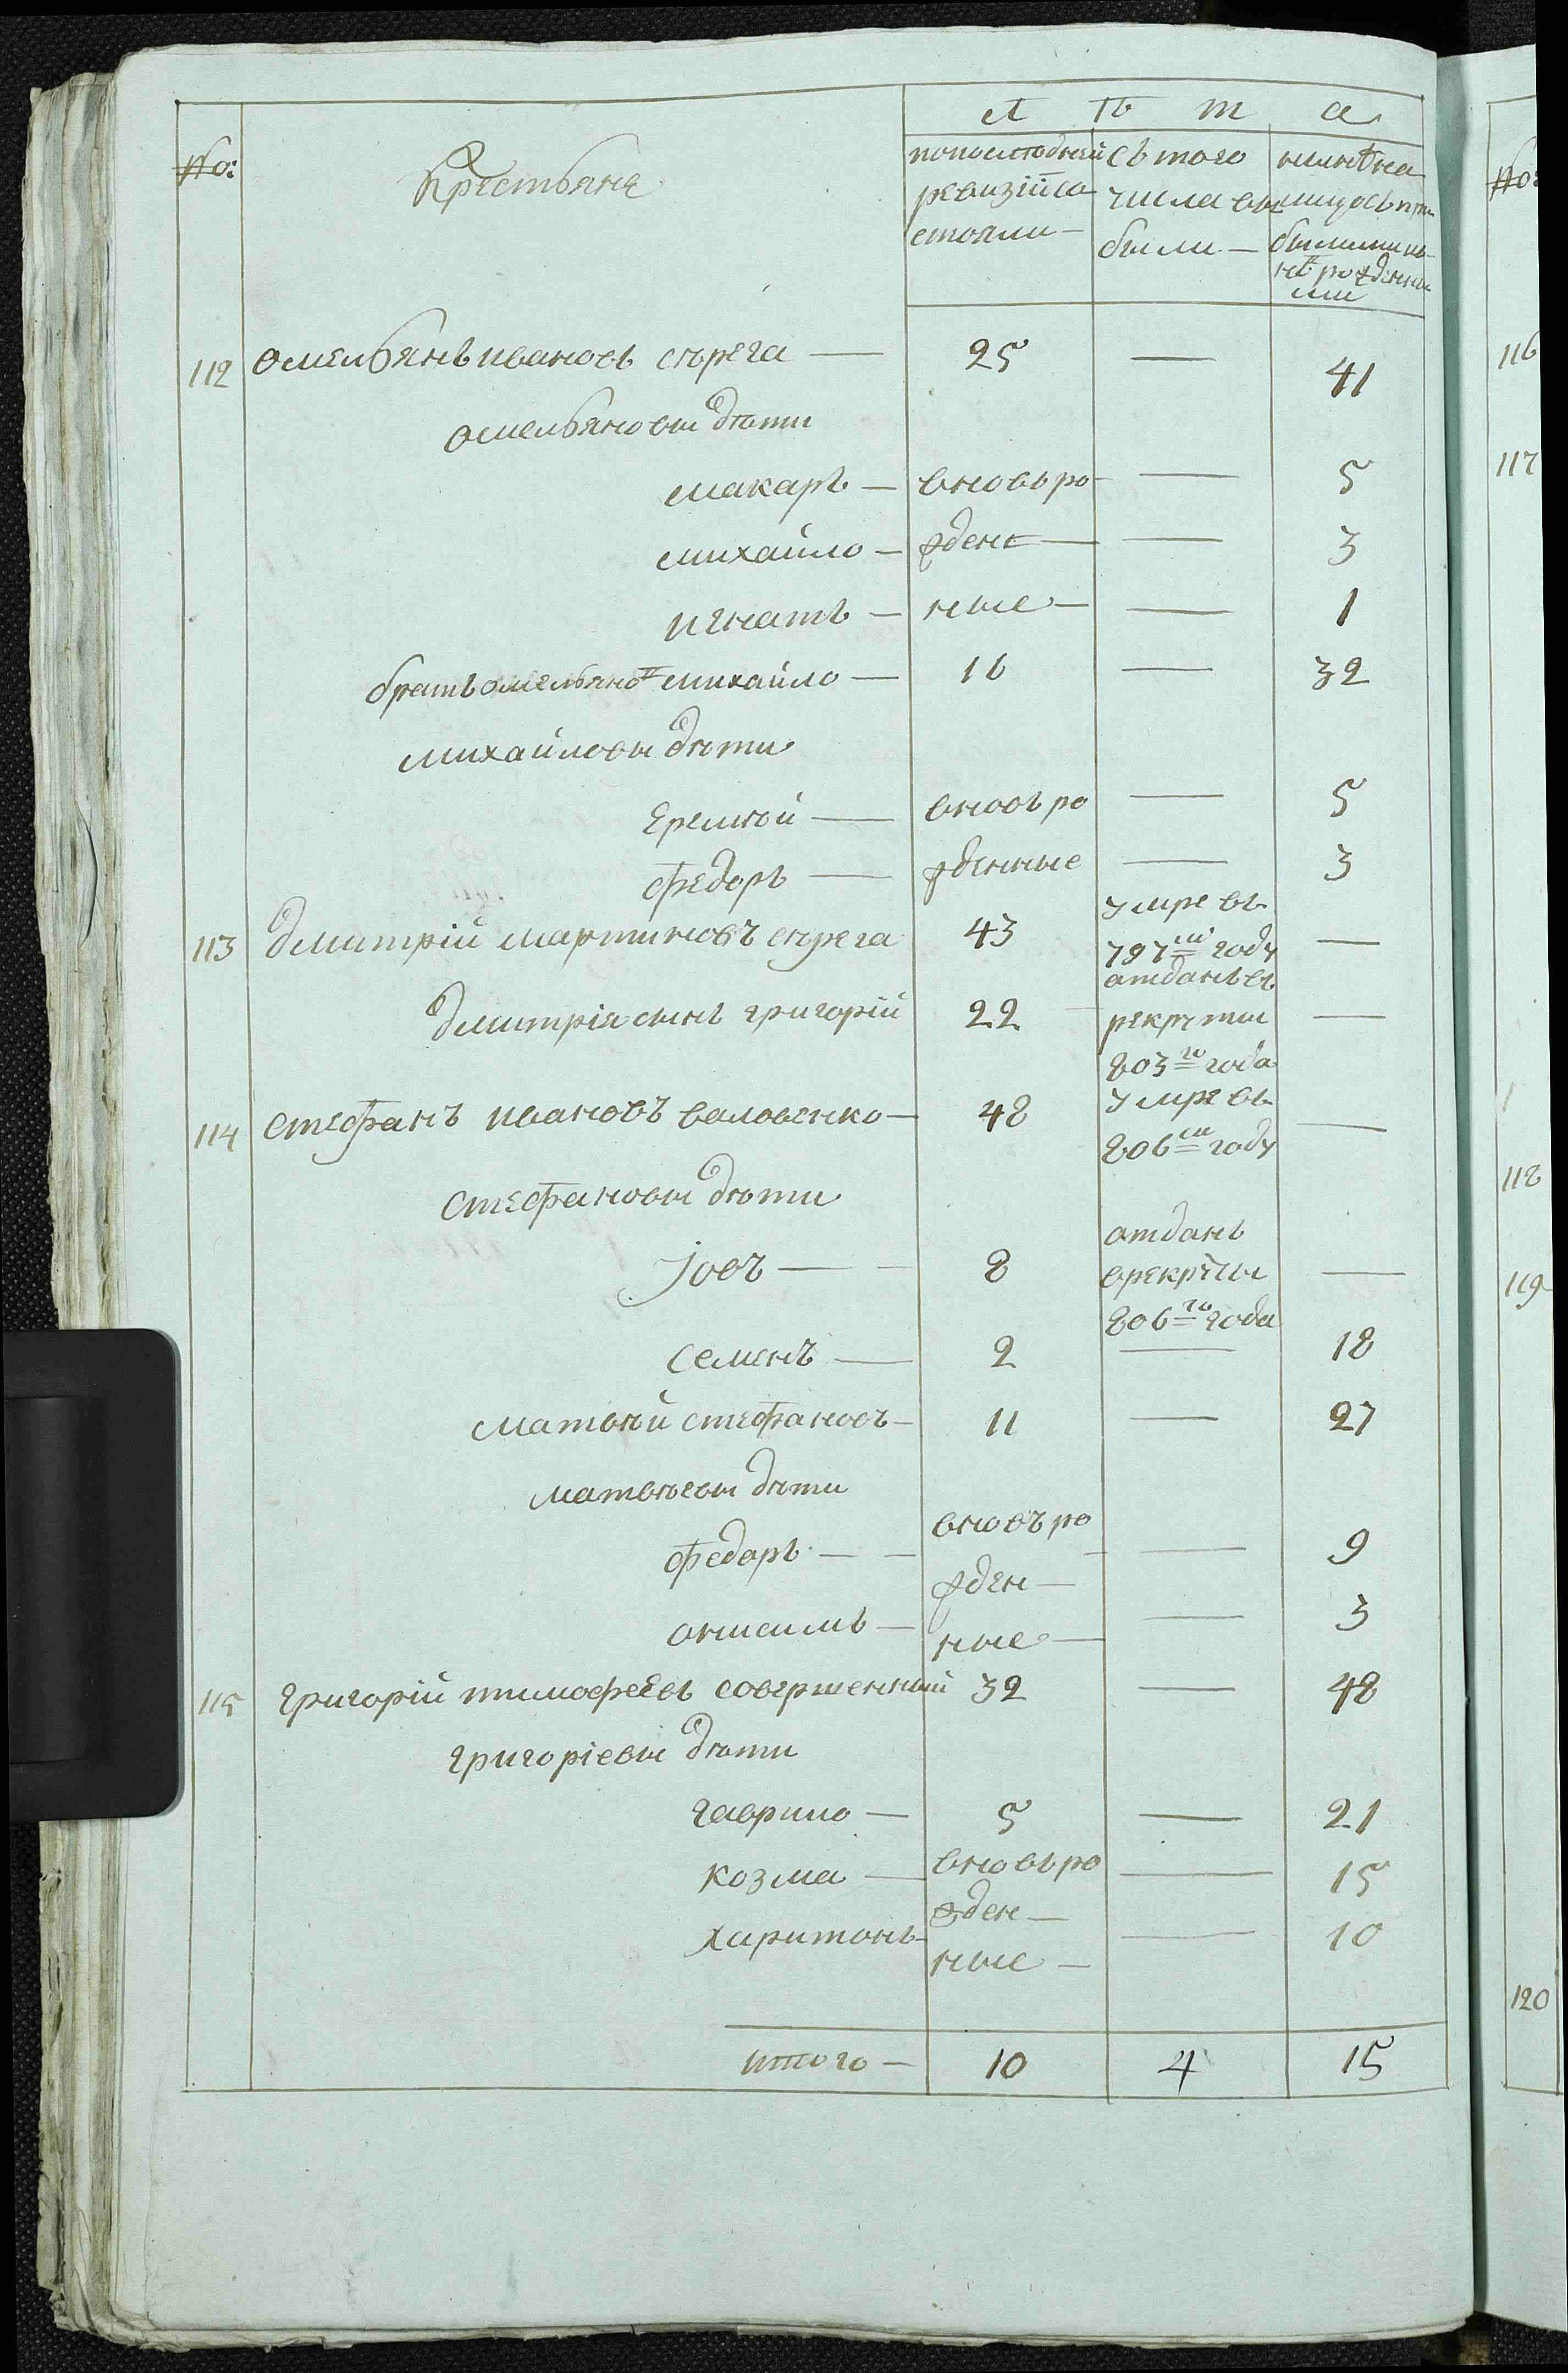 Л Ѣ Т А
№: Крестьяне
попоследней ревизіи состояли — | съ того числа выбыли — | нынѣ на лицо съ прибылыми и новѣ рожденными
112 Омельянъ ивановъ сърега — 25 — 41
омельяновы дѣти
макаръ — вновь ро — 5
михайло — жден — 3
игнатъ — ные — 1
братъ омельяновъ михайло — 16 — 32
михайловы дѣти
Еремѣй — вновъ ро — 5
федоръ — жденные — 3
113 Дмитрій мартиновъ сърега 43 умре въ 797м году —
Дмитрія сынъ григорій 22 атданъ въ рекруты 803го года —
114 Стефанъ ивановъ валовенко — 48 умре въ 806м году —
Стефановы дѣти
Іовъ — 8 атданъ врекруты 806го года —
Семенъ — 2 — 18
матвѣй стефановъ — 11 — 27
матвѣевы дѣти
федаръ — вновъ ро — 9
жден —
анисимъ — ные — 3
115 Григорій тимофеевъ совершенный 32 — 48
григоріевы дѣти
гаврило — 5 — 21
козма — вновъ ро — 15
жден —
харитонъ — ные — 10
итого — 10 4 15
№:
116
117
118
119
120